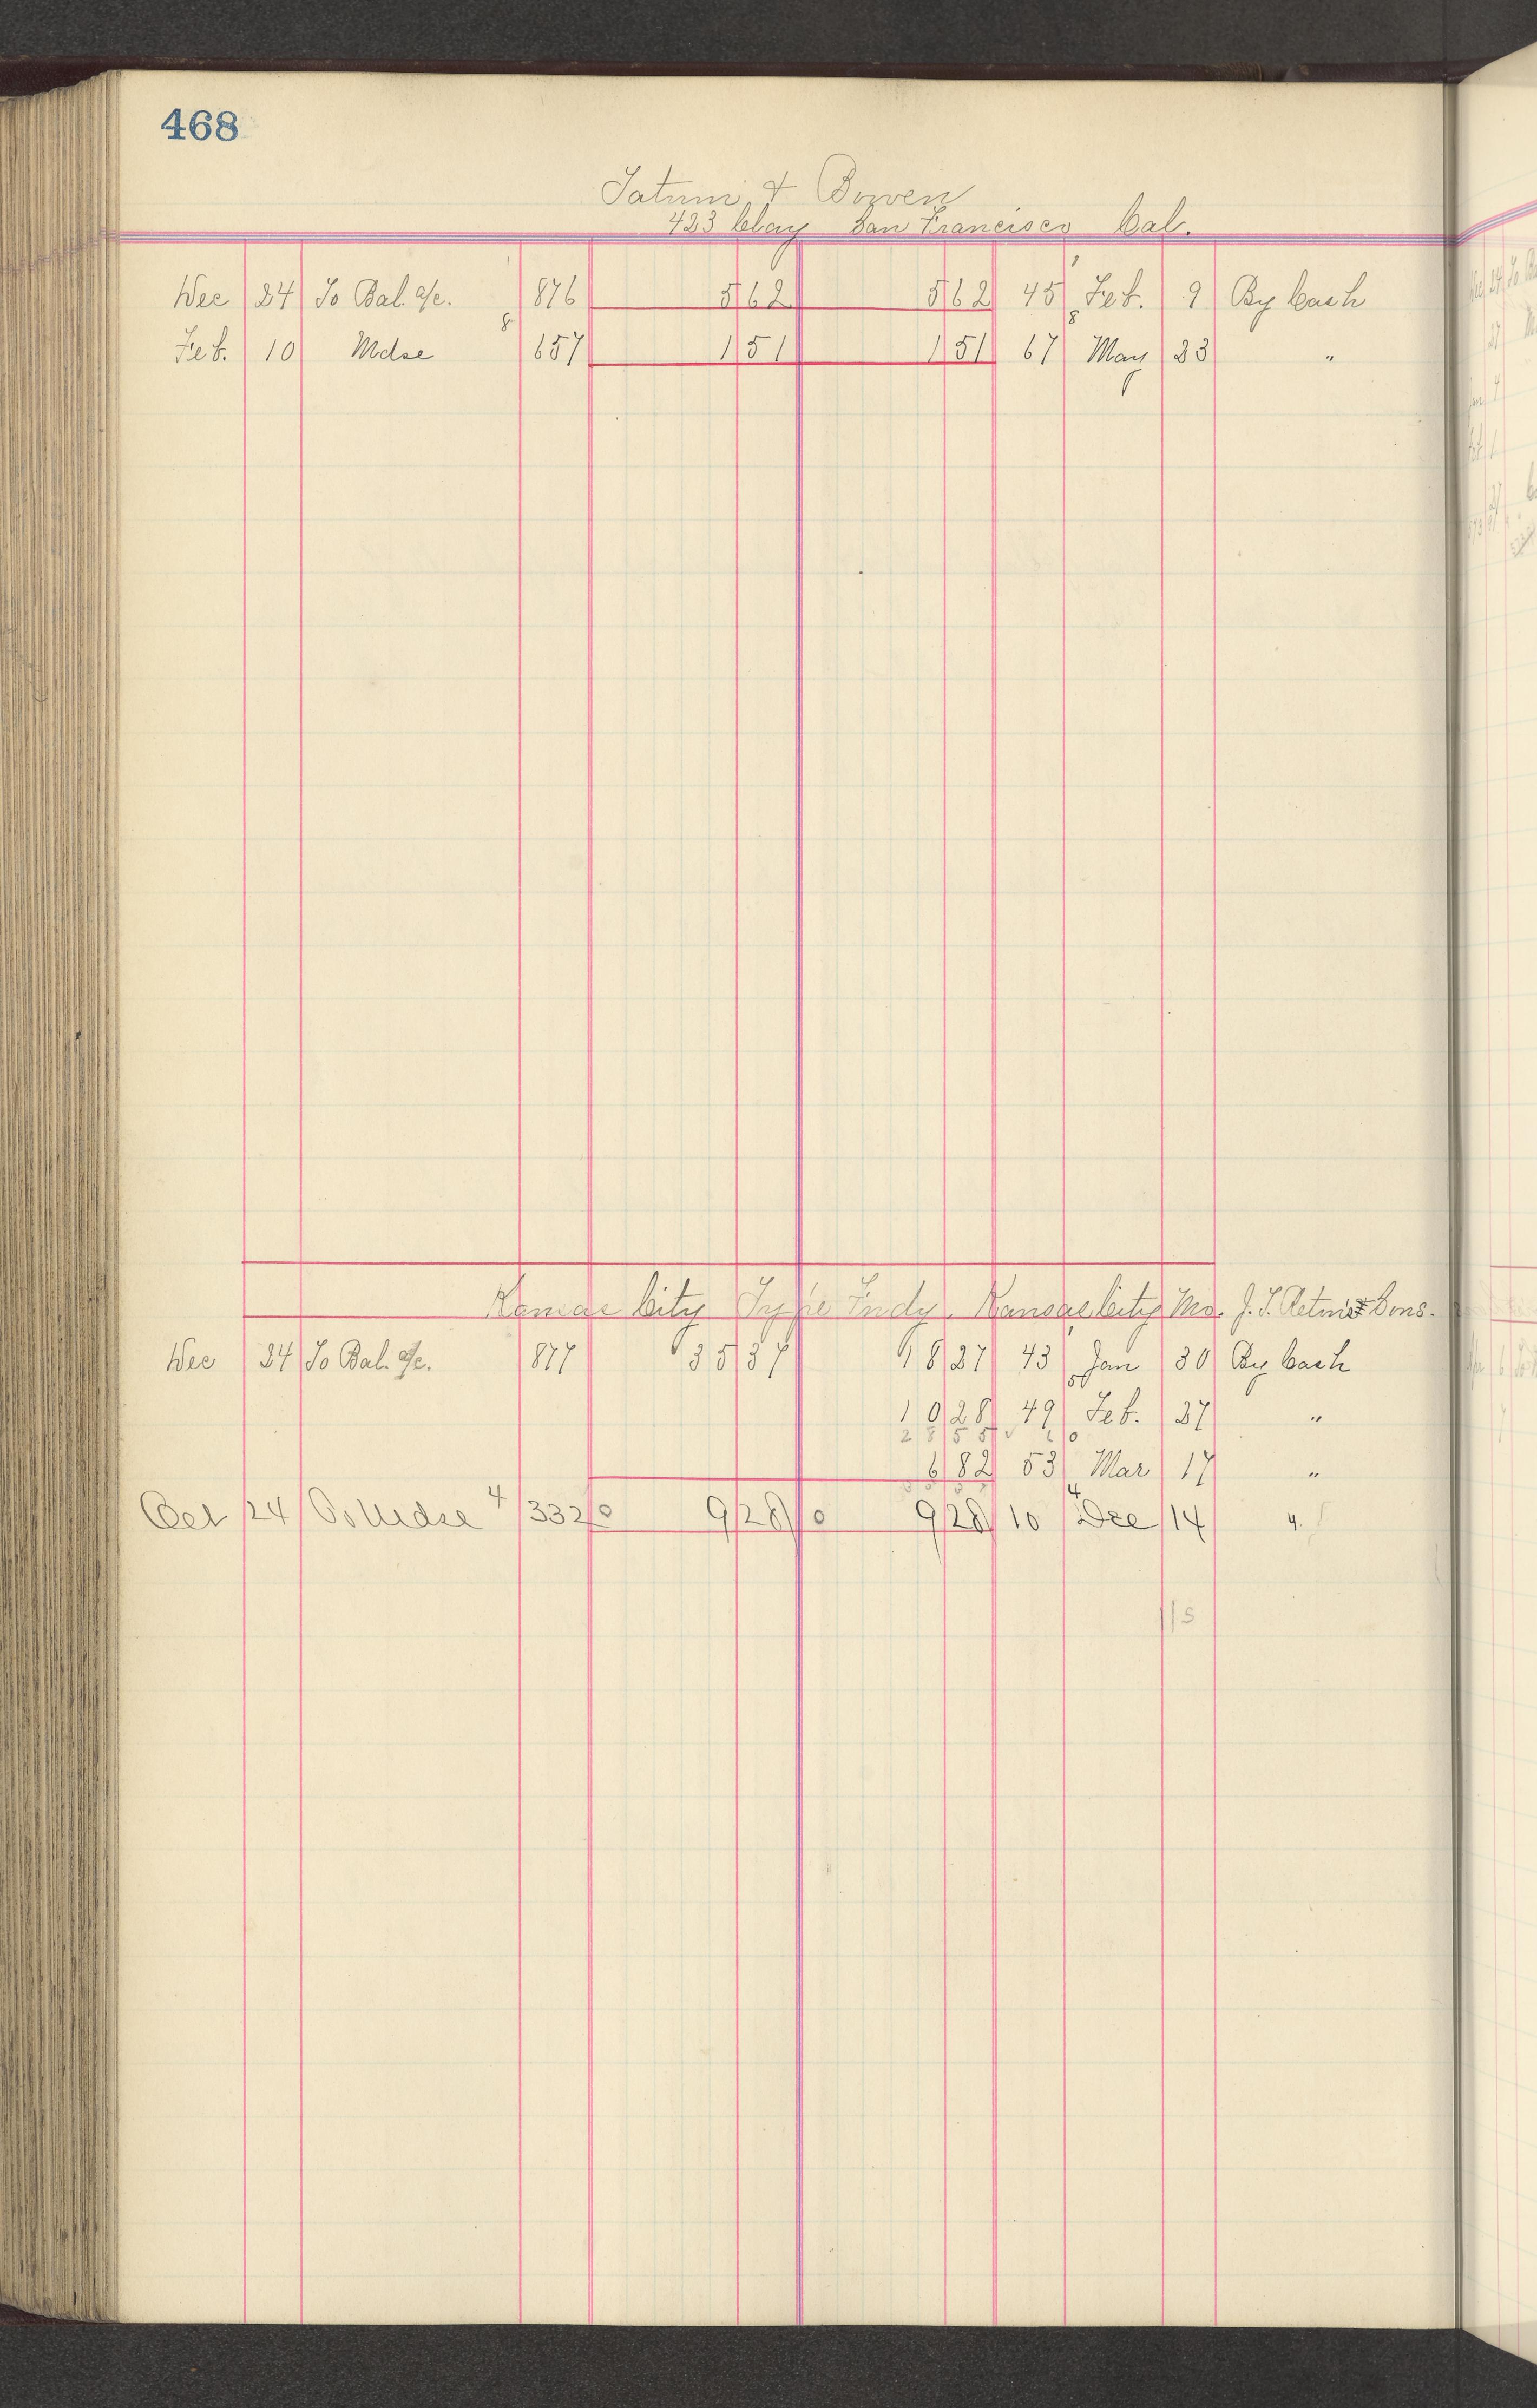 468
Tatum & Bowen
423 Clay San Francisco Cal.
Dec 24 To Bal. a/c. 876 5 62 5 62 45 Feb. 9 By Cash
Feb. 10 Mdse 8 657 1 51 1 51 67 8 May 23 "
Kansas City Type Fndy. Kansas City Mo. J. T. & Sons.
Dec 24 To Bal. a/c. 877 35 37 18 27 43 Jan 30 By Cash
10 28 49 Feb. 27 "
28 55
6 82 53 Mar 17 "
Oct 24 To Mdse 4 332 0 9 28 0 9 28 10 4 Dec 14 "
115